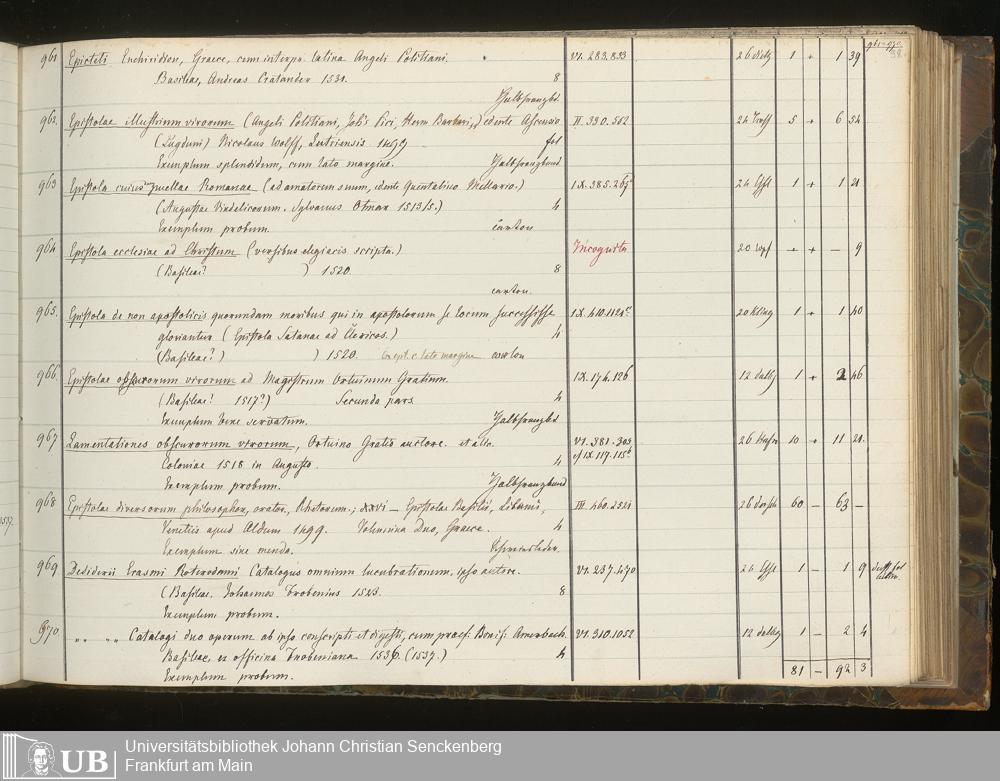 961 Epicteti Enchiridion, Graece, cum interpr. latina Angeli Politiani. VI. 283.853 1 + 1 39
Basileae, Andreas Cratander 1531. 8
Halbfranzbd.
962. Epistolae illustrium virorum (Angeli Politiani, Joh's Pici, Herm Barbari,) edente Ascensio II. 330.562 5 + 6 54
(Lugduni) Nicolaus Wolff, Lutriensis 1499 fol
Exemplum splendidum, cum lato margine. Halbfranzband
963 Epistola cuiusd puellae Romanae (ad amatorem suum, edente Quentalino Mellario.) IX. 385. 1 + 1 21
(Augustae Vindelicorum. Sylvanus Otmar 1513/5.) 4
Exemplum probum. carton
964 Epistola ecclesiae ad Christum (versibus elegiacis scripta.) Incognita - + - 9
(Basileae? ) 1520. 8
carton.
965. Epistola de non apostolicis quorundam moribus qui in apostolorum se locum successisse 20 Kling 1 + 1 40
gloriantur (Epistola Satanae ad Clericos.) 4
(Basileae?) ) 1520. c. lato margine carton
966 Epistolae obscurorum virorum ad Magistrum Ortuinum Gratium. IX. 174.126 1 + 2 46
(Basileae? 1517?) Secunda pars 4
Exemplum bene servatum. Halbfranzbd
967 Lamentationes obscurorum virorum, Ortuino Gratio auctore. et alio. VI. 381.303 26 Hafn 10 + 11 21.
Coloniae 1518 in Augusto. 4 cf IX.117.115
Exemplum probum. Halbfranzband
968 Epistolae diversorum philosophor, orator, Rhetorum; xxvi — Epistolae Basilii, Libanii, III. 460.2521 60 — 63 —
Venetiis apud Aldum 1499. Volumina Duo, Graece. 4
Exemplum sine menda. Schweinsleder.
969 Desiderii Erasmi Roterodami Catalogus omnium lucubrationum, ipso autore. VI. 237.470 1 — 1 9
(Basileae. Johannes Frobenius 1523. 8
Exemplum probum.
970 " " " " Catalogi duo operum ab ipso conscripti et digesti, cum praef: Bonif: Amerbach. VI. 310.1052 1 — 2 4
Basileae, ex officina Frobeniana 1536. (1537.) 4
Exemplum probum. 81 — 92 3
UB
Universitätsbibliothek Johann Christian Senckenberg
Frankfurt am Main